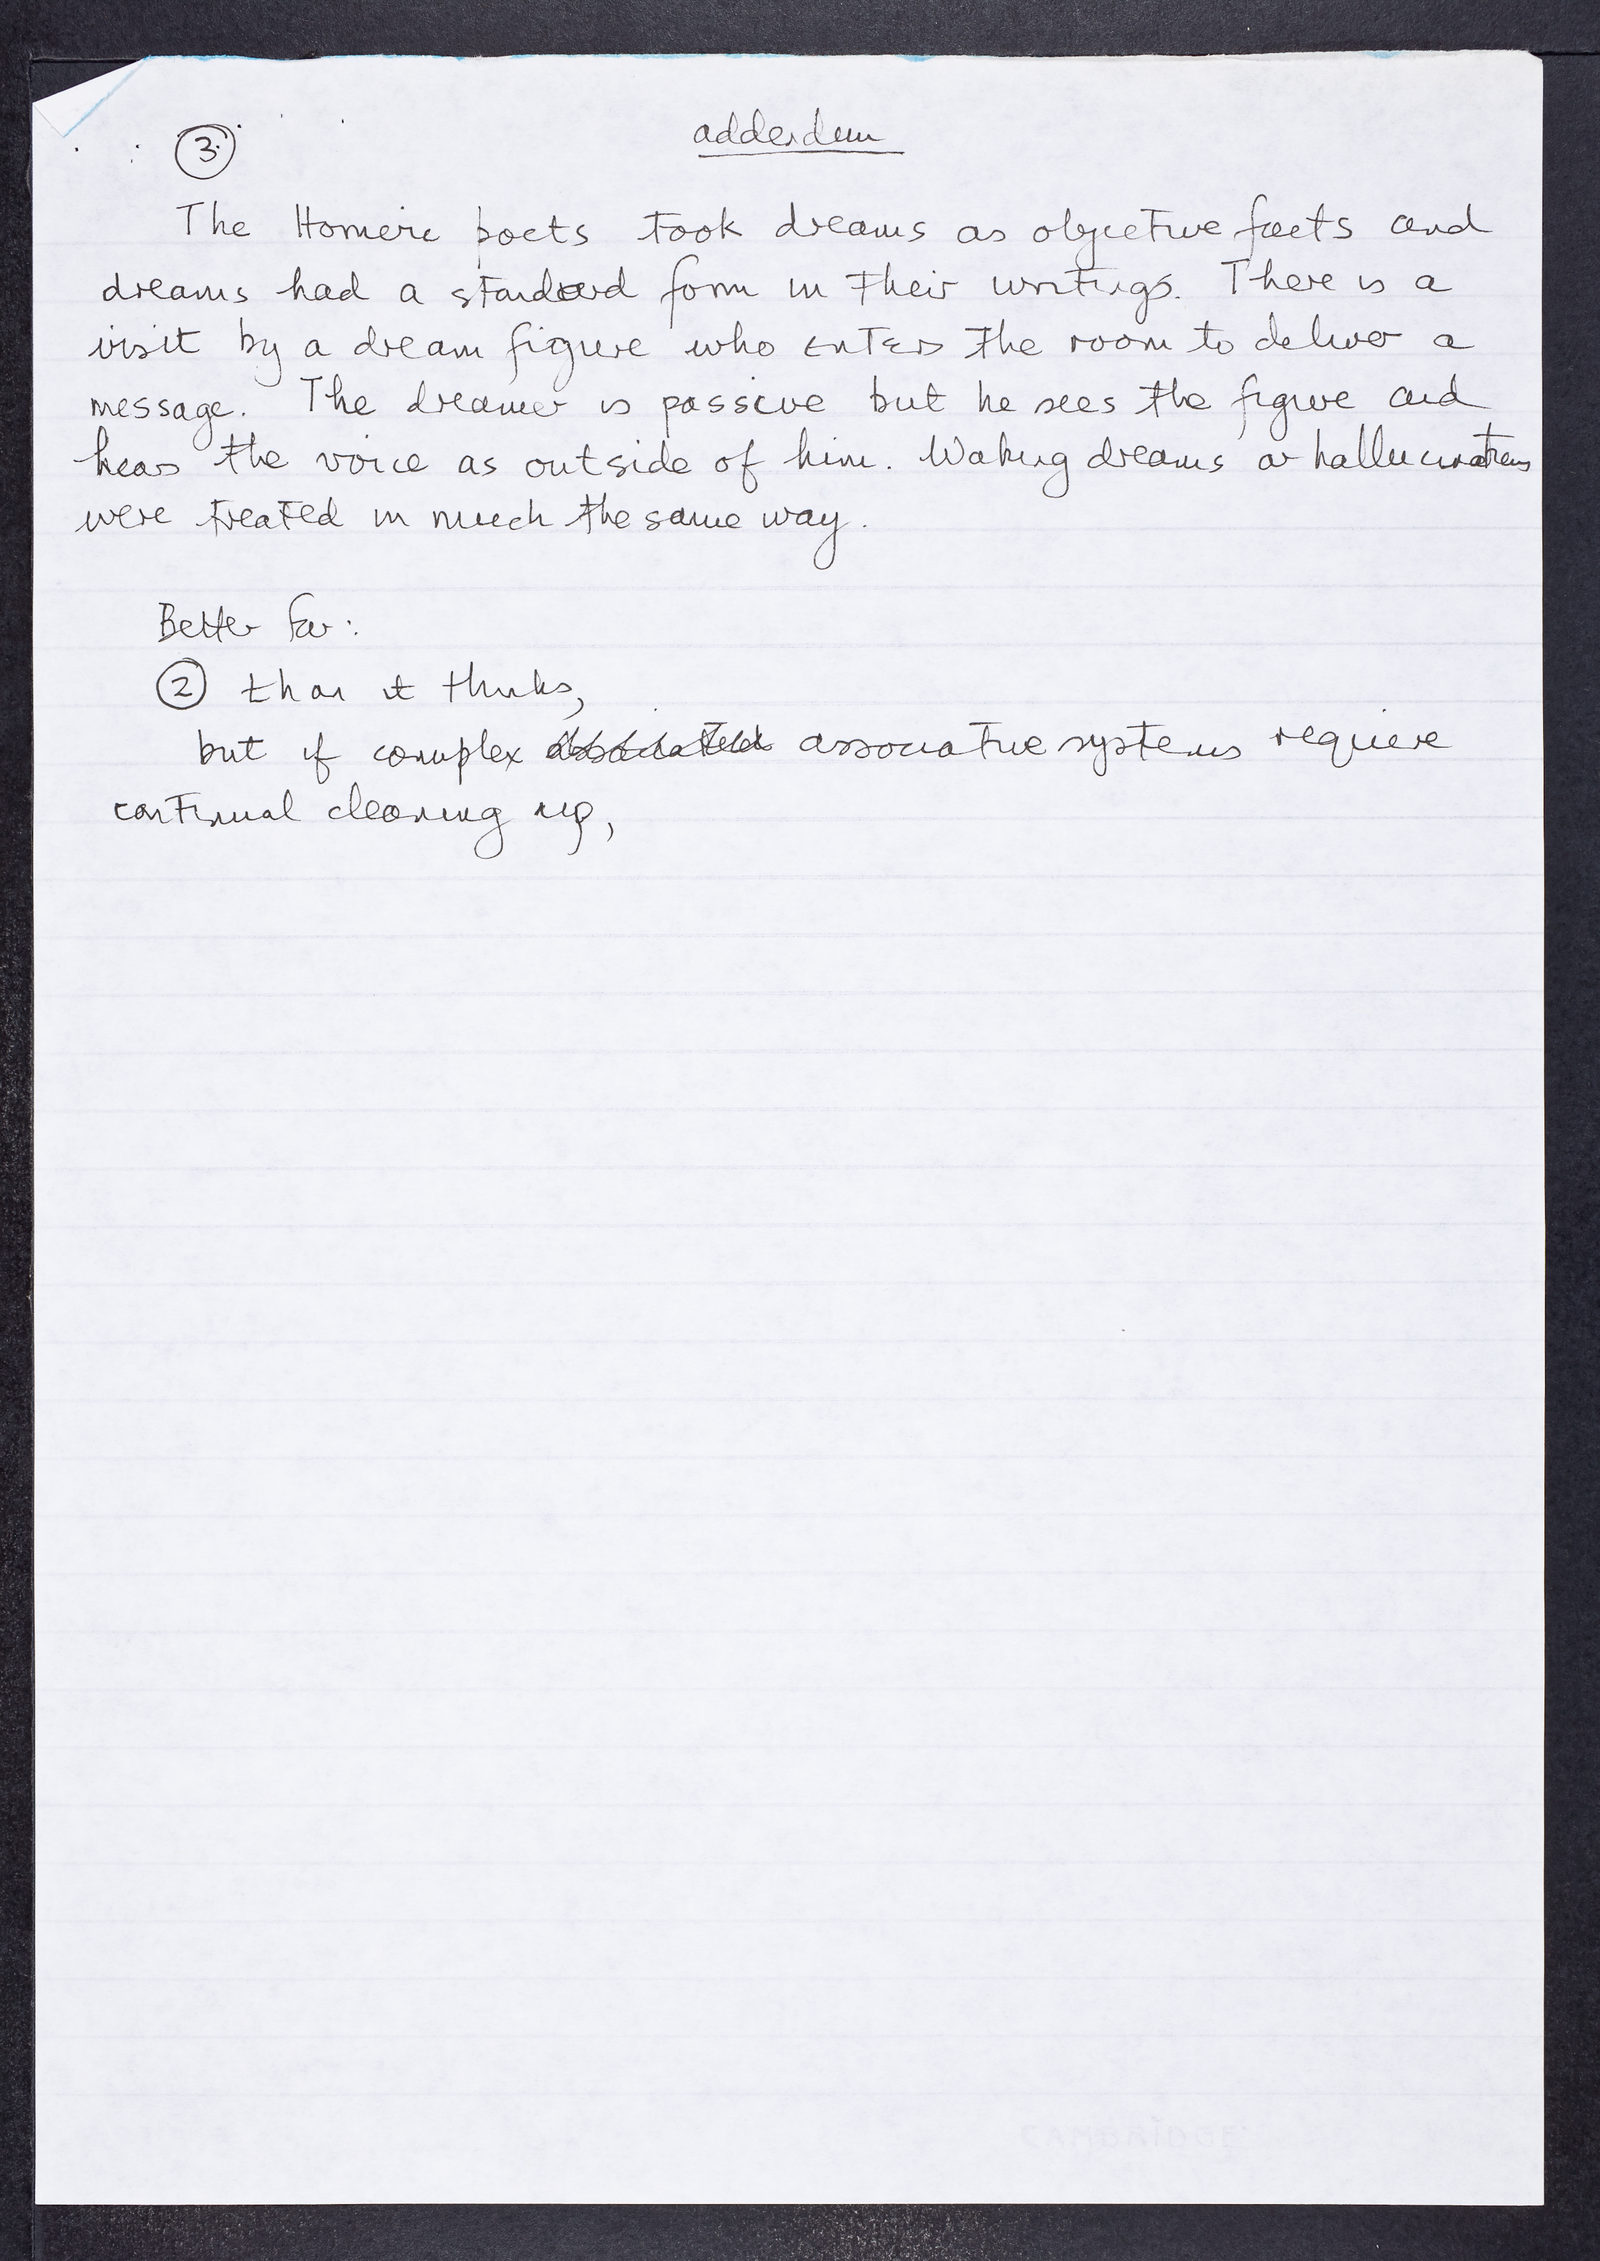 addendum
③
The Homeric poets took dreams as objective facts and
dreams had a standard form in their writings. There is a
visit by a dream figure who enters the room to deliver a
message. The dreamer is passive but he sees the figure and
hears the voice as outside of him. Waking dreams or hallucinations
were treated in much the same way.
Better for:
② than it thinks,
but if complex associated associative systems require
continual cleaning up,